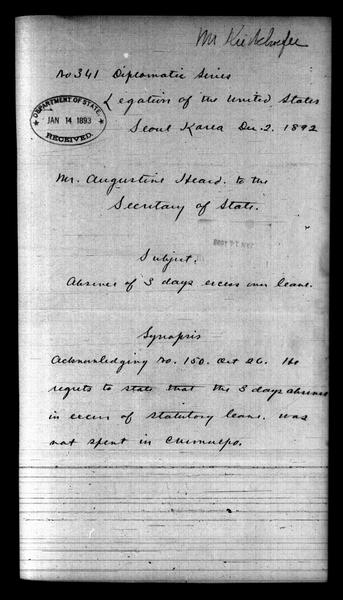 Mr Kiedelhofer
No 341 Diplomatic Series
DEPARTMENT OF STATE
JAN 14 1893
RECEIVED.
Legation of the United States
Seoul Korea Dec. 2. 1892
Mr. Augustine Heard. to the
Secretary of State.
Subject.
Absence of 3 days excess over leave.
Synopsis
Acknowledging No. 150. Oct 26. He
regrets to state that the 3 days absence
in excess of statutory leave. was
not spent in Chemulpo.